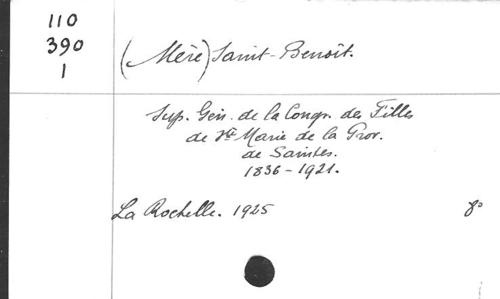 110
390
1
(Mère) Saint-Benoît.
Sup. Gén. de la Congr. des Filles
de Ste Marie de la Prov.
de Saintes.
1836-1921.
La Rochelle. 1925 8°